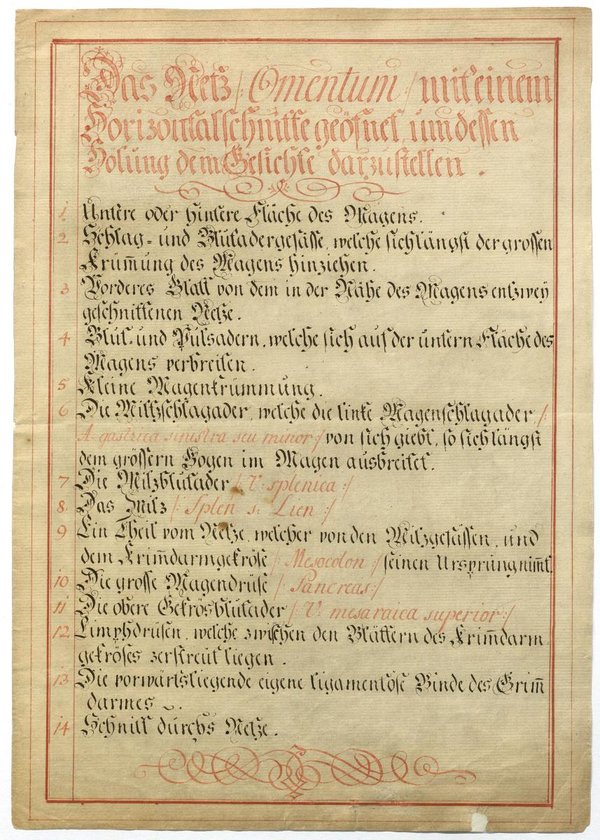 Das Netz /: Omentum :/ mit einem
Horizontalschnitte geöfnet um dessen
Holung dem Gesichte darzustellen.
1 Untere oder hintere Fläche des Magens.
2 Schlag- und Blutadergefässe, welche sich längst der grossen
Krüm̄ung des Magens hinziehen.
3 Vorderes Blatt von dem in der Nähe des Magens entzwey
geschnittenen Netze.
4 Blut- und Pulsadern, welche sich auf der untern Fläche des
Magens verbreiten.
5 Kleine Magenkrümmung.
6 Die Miltzschlagader, welche die linke Magenschlagader /:
A. gastrica sinistra seu minor :/ von sich giebt, so sich längst
dem grössern Bogen im Magen ausbreitet.
7 Die Milzblutader /: V. splenica :/
8 Das Milz /: Splen s. Lien :/
9 Ein Theil vom Netze, welcher von den Milzgefässen, und
dem Krim̄darmgekröse /: Mesocolon :/ seinen Ursprung nim̄t.
10 Die grosse Magendrüse /: Pancreas :/
11 Die obere Gekrösblutader /: V. mesaraica superior :/
12 Limphdrüsen, welche zwischen den Blättern des Krim̄darm
gekröses zerstreut liegen.
13 Die vorwärtsliegende eigene ligamentöse Binde des Grim̄
darmes.
14 Schnitt durchs Netze.